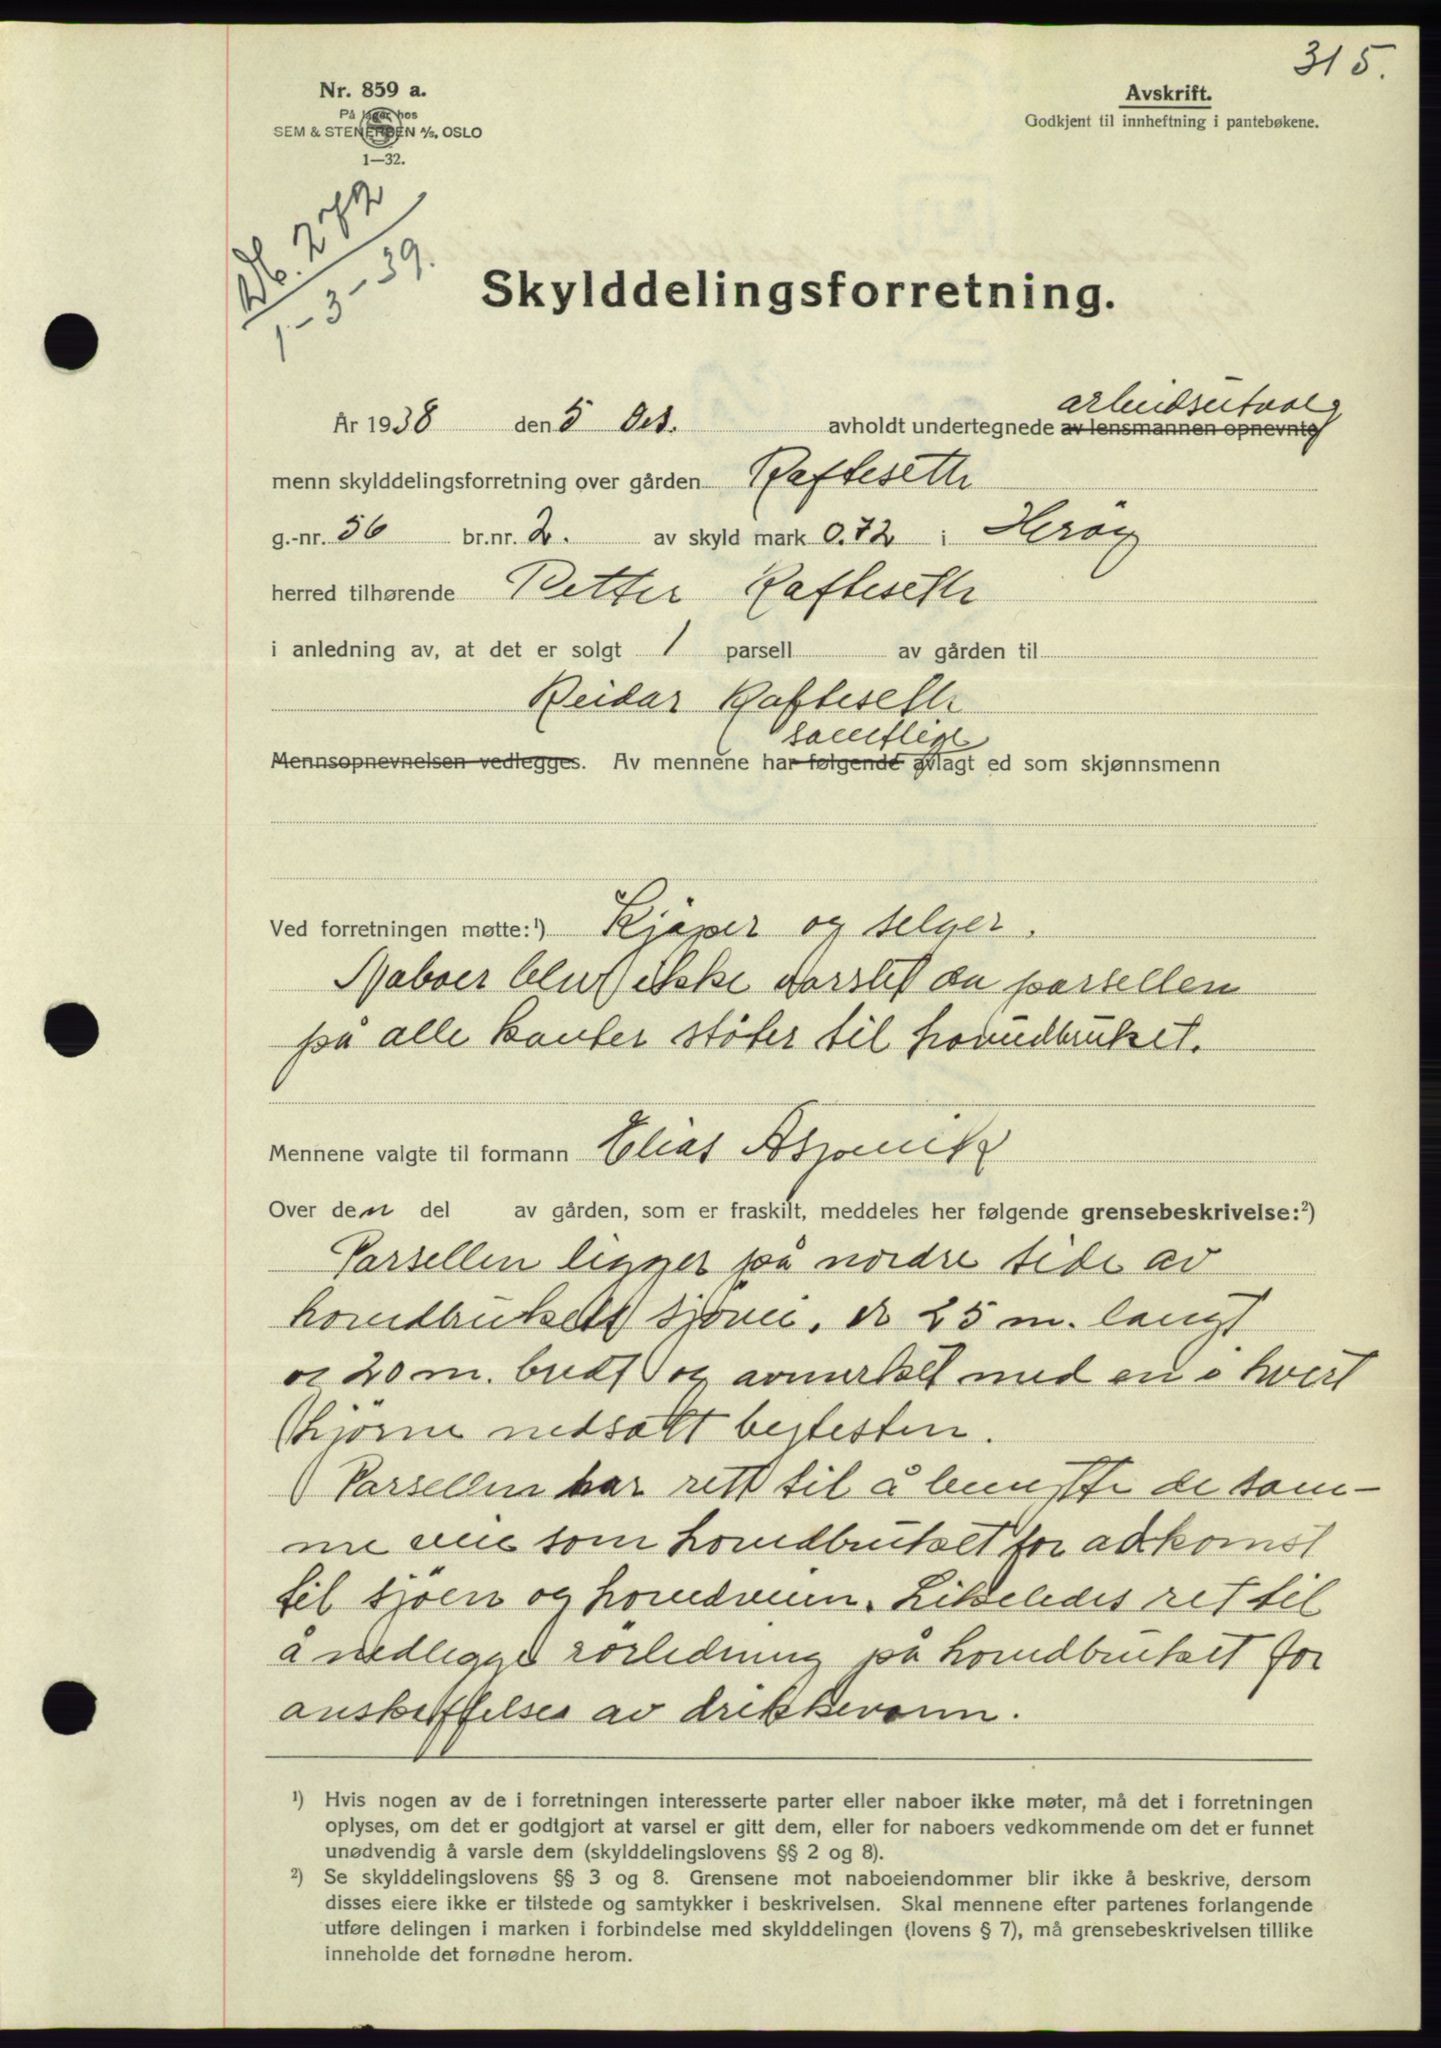 315.
Nr. 859 a.
På lager hos
SEM & STENERSEN A/S, OSLO
1—32.
Avskrift.
Godkjent til innheftning i pantebøkene.
Db. 272
1-3-39.
Skylddelingsforretning.
arbeidsutvalg
År 1938 den 5 Des. avholdt undertegnede av lensmannen opnevnte
menn skylddelingsforretning over gården Rafteseth
g.-nr. 56 br.nr. 2. av skyld mark 0.72 i Herøy
herred tilhørende Petter Rafteseth
i anledning av, at det er solgt 1 parsell av gården til
Reidar Rafteseth
samtlige
Mennsopnevnelsen vedlegges. Av mennene har følgende avlagt ed som skjønnsmenn
Ved forretningen møtte:¹) Kjøper og selger.
Naboer blev ikke varslet da parsellen
på alle kanter støter til hovedbruket.
Mennene valgte til formann Elias Aspevik
Over den del av gården, som er fraskilt, meddeles her følgende grensebeskrivelse:²)
Parsellen ligger på nordre side av
hovedbrukets sjøvei, er 25 m. langt
og 20 m. bredt og avmerket med en i hvert
hjørne nedsatt bytesten.
Parsellen har rett til å benytte de sam-
me veie som hovedbruket for adkomst
til sjøen og hovedveien. Likeledes ret til
å nedlegge rørledning på hovedbruket for
anskaffelse av drikkevann.
¹) Hvis nogen av de i forretningen interesserte parter eller naboer ikke møter, må det i forretningen
oplyses, om det er godtgjort at varsel er gitt dem, eller for naboers vedkommende om det er funnet
unødvendig å varsle dem (skylddelingslovens §§ 2 og 8).
²) Se skylddelingslovens §§ 3 og 8. Grensene mot naboeiendommer blir ikke å beskrive, dersom
disses eiere ikke er tilstede og samtykker i beskrivelsen. Skal mennene efter partenes forlangende
utføre delingen i marken i forbindelse med skylddelingen (lovens § 7), må grensebeskrivelsen tillike
inneholde det fornødne herom.